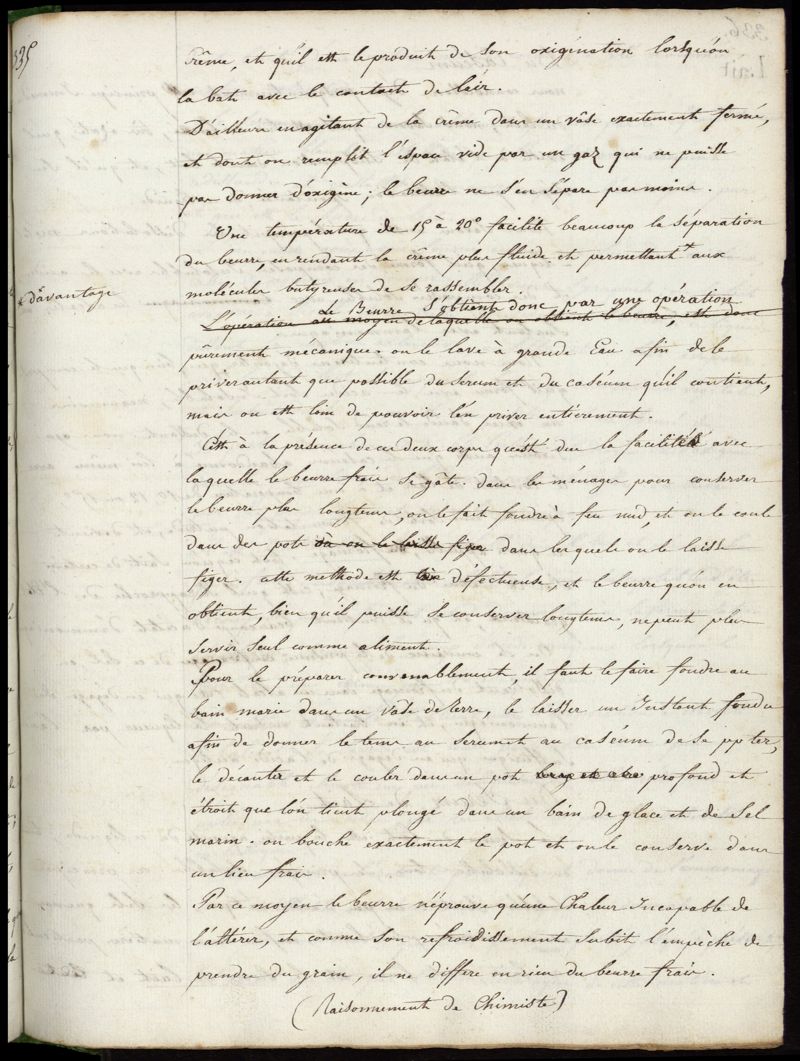 335
crême, et qu'il est le produit de son oxigénation lorsqu'on
la bat avec le contact de l'air.
D'ailleurs en agitant de la crême dans un vâse exactement fermé,
et dont on remplit l'espace vide par un gaz qui ne puisse
pas donner d'oxigène; le beurre ne s'en sépare pas moins.
Une température de 15 à 20° facilite beaucoup la séparation
du beurre, en rendant la crême plus fluide et permettant + aux
+ davantage
molécules butyreuses de se rassembler.
Le Beurre s'obtient donc par une opération
L'opération au moyen de laquelle on obtient le beurre, est donc
purement mécanique. on le lave à grande Eau afin de le
priver autant que possible du serum et du caséum qu'il contient,
mais on est loin de pouvoir l'en priver entièrement.
C'est à la présence de ces deux corps qu'est due la facilité avec
laquelle le beurre frais se gâte. dans les ménages pour conserver
le beurre plus longtems, on le fait fondre à feu nud, et on le coule
dans des pots où on le laisse figer dans lesquels on le laisse
figer. cette methode est très défectueuse, et le beurre qu'on en
obtient, bien qu'il puisse se conserver longtems, ne peut plus
servir seul comme aliment.
Pour le préparer convenablement, il faut le faire fondre au
bain marie dans un vase de terre, le laisser un Instant fondu
afin de donner le tems au serum et au caséum de se ppter,
le décanter et le couler dans un pot profond et
étroit que l'on tient plongé dans un bain de glace et de sel
marin. on bouche exactement le pot et on le conserve dans
un lieu frais.
Par ce moyen le beurre n'éprouve qu'une Chaleur Incapable de
l'altérer, et comme son refroidissement subit l'empêche de
prendre du grain, il ne differe en rien du beurre frais.
(Raisonnement de Chimiste)